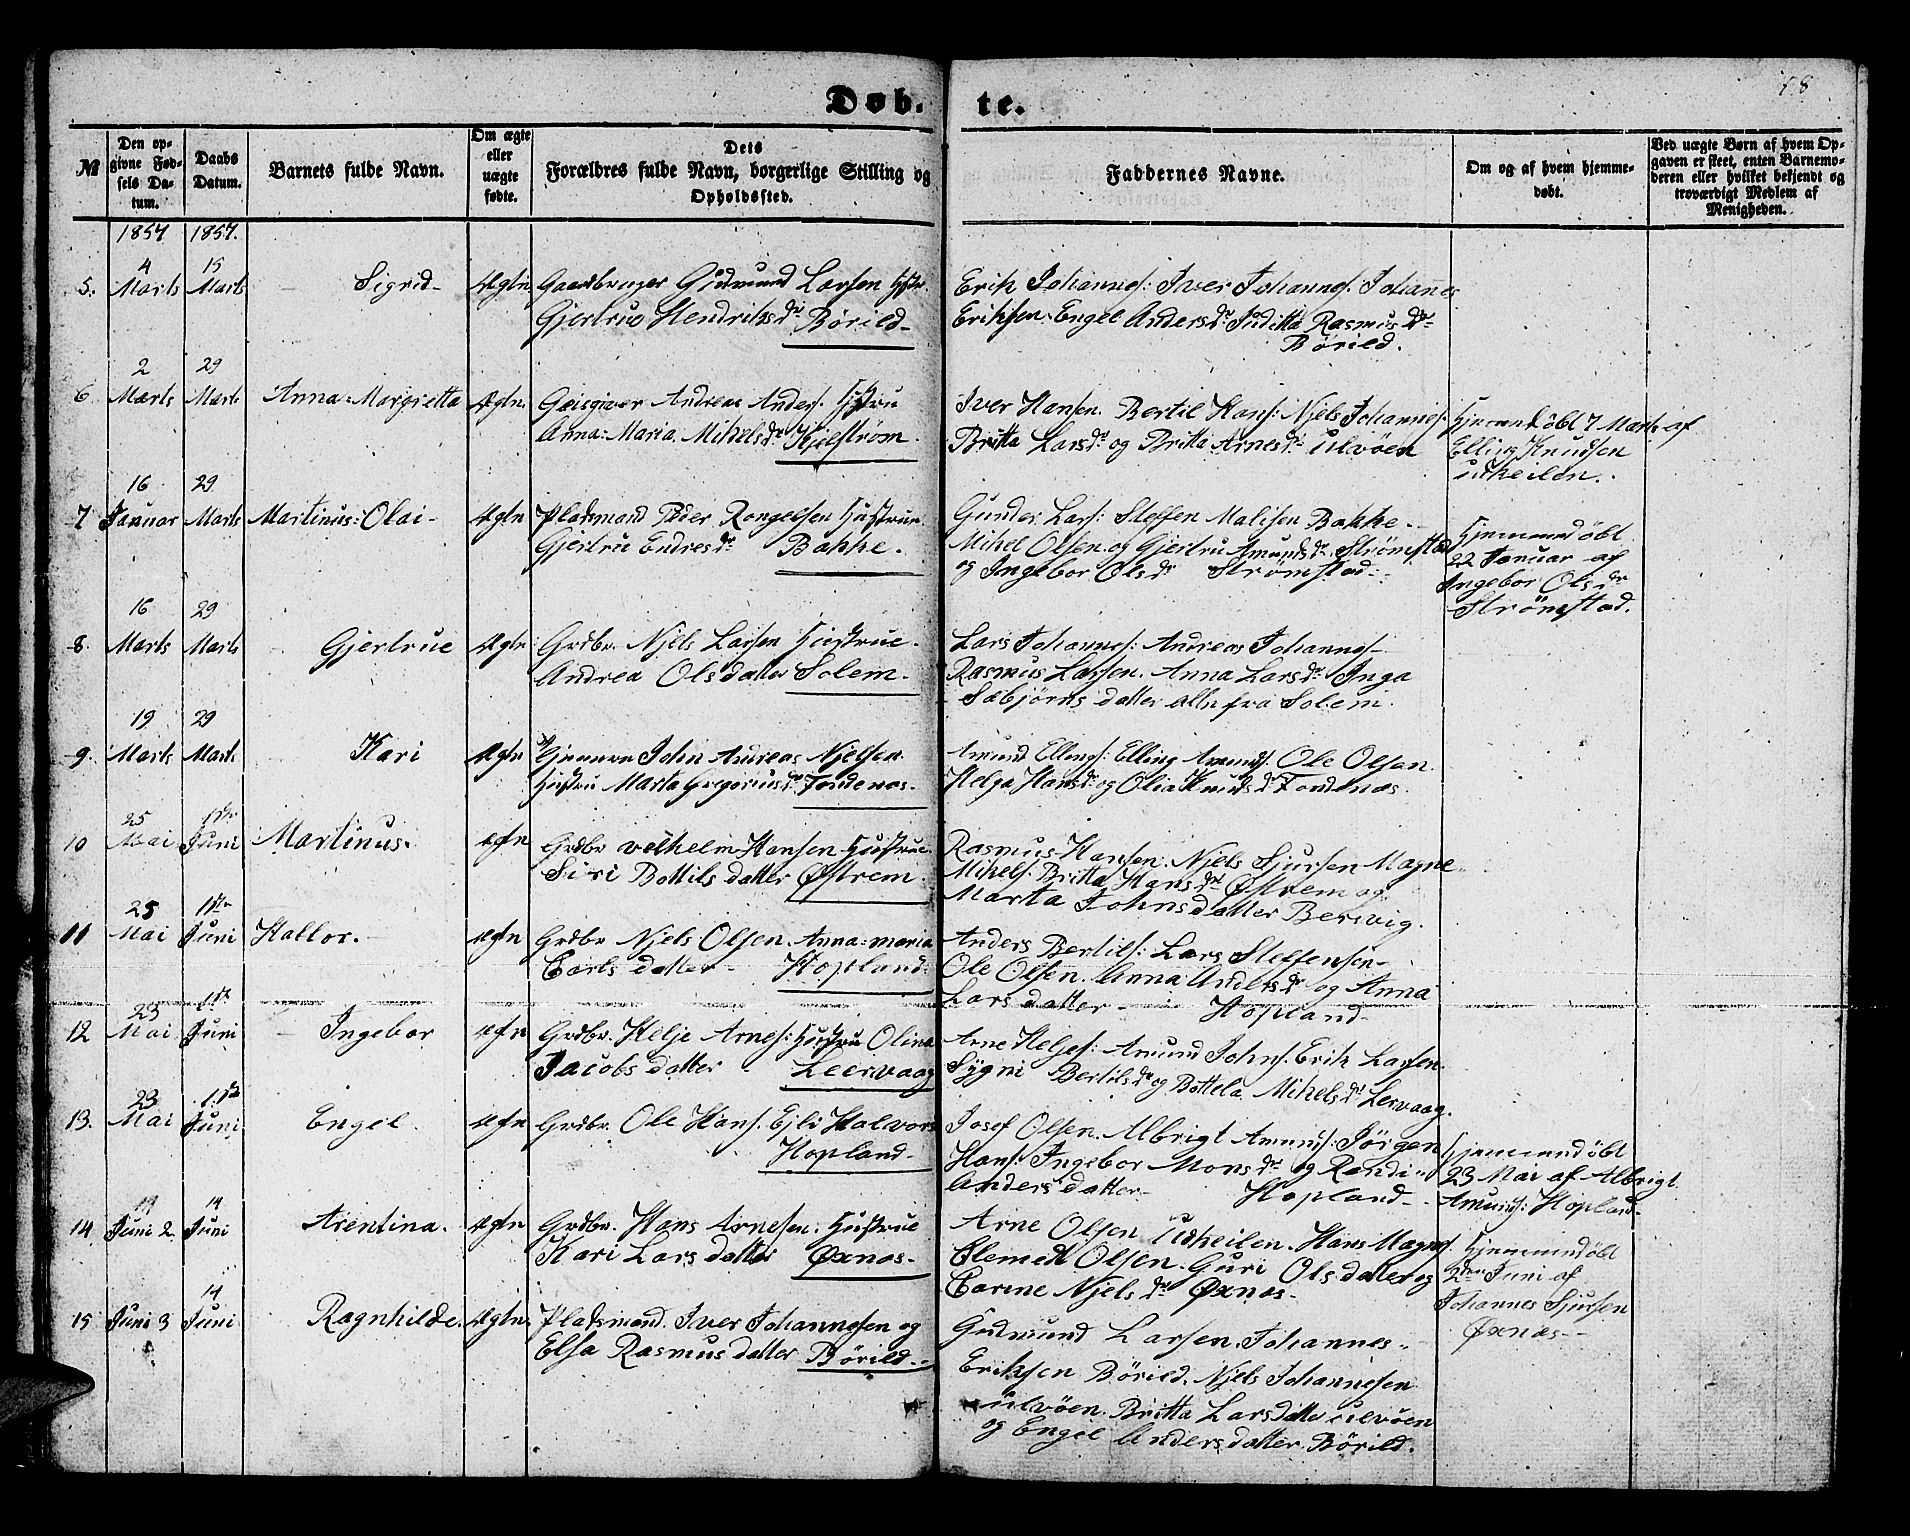 18
Døb- te.
№
Den op-
givne Fød-
sels Da-
tum.
Daabs
Datum.
Barnets fulde Navn.
Om ægte
eller
uægte
fødte.
Dets
Forældres fulde Navn, borgerlige Stilling og
Opholdssted.
Faddernes Navne.
Om og af hvem hjemme-
døbt.
Ved uægte Børn af hvem Op-
gaven er skeet, enten Barnemo-
deren eller hvilket bekjendt og
troværdigt Medlem af
Menigheden.
1857 1857.
5. 4 Marts 15 Marts Sigrid Ægte
Gaardbruger Gudmund Larsen Hstr.
Gjertrue Hendriksdr Börild
Erik Johannes: Iver Johannes: Johanes
Eriksen. Engel Andersdr Juditta Rasmusdr
Börild.
6. 2 Marts 29 Marts Anna-Margretta Ægte
Gæsgiver Andreas Anders: Hustru
Anna-Maria Mikelsdr Kjelstrøm.
Iver Hansen. Bertil Hans: Njels Johannes:
Britta Larsdr og Britta Arnesdr Ulvöen
Hjemmedöbt 7 Marts af
Elling Knudsen
Utkeilen.
7. 16 Januar 29 Marts Martinus-Olai Ægte
Pladsmand Peder Rongelsen Hustrue
Gjertru Endresdr Bakke.
Gunder Lars: Steffen Malisen Bakke
Mikel Olsen og Gjertru Amundsdr Strømstad
og Ingebor Olsdr Strømstad
Hjemmedöbt
22 Januar af
Ingebor Olsdr
Strömstad.
8. 16 Marts 29 Marts Gjertrue Ægte
Grdbr. Njels Larsen Hustrue
Andrea Olsdatter Solem.
Lars Johannes: Andreas Johannes
Rasmus Larsen. Anna Larsdr Inga
Sæbjörnsdatter alle fra Solem.
9. 19 Marts 29 Marts Kari Ægte
John Andreas Njelsen
Hustru Marta Gregoriusdr Fondenæs.
Amund Ellings: Elling Amunds: Ole Olsen.
Helga Hansdr og Olia Knudsdr Fondenæs.
10 25 Mai 1ste Juni Martinus. Ægte
Grdbr Vilhelm Hansen Hustrue
Siri Bottilsdatter Østrem
Rasmus Hansen. Njels Sjursen Magne
Mikels: Britta Hansdr Østrem og
Marta Johnsdatter Bervig.
11 25 Mai 1ste Juni Hallor. Ægte
Grdbr Njels Olsen. Anna-Maria
Carlsdatter Hopland
Anders Bertils: Lars Steffensen
Ole Olsen. Anna Andersdr og Anna
Larsdatter Hopland
12 23 Mai 1ste Juni Ingebor Ægte
Grdbr. Helje Arnes: Hustru Olina
Jacobsdatter Leervaag
Arne Heljes: Amund Johns: Erik Larsen.
Sygni Bertilsdr og Bottela Mikelsdr Lervaag.
13. 23 Mai 1ste Juni Engel Ægte
Grdbr. Ole Hans: Eili Halvors
Hopland
Josef Olsen. Albrigt Amunds: Jørgen
Hans: Ingebor Monsdr og Randi
Andersdatter Hopland
Hjemmedöbt
23 Mai af Albrigt
Amunds: Hopland
14. Juni 2 14 Juni Arentina. Ægte
Grdbr. Hans Arnesen: Hustrue
Kari Larsdatter Øxnæs
Arne Olsen Utkeilen. Hans Magnes:
Clemedt Olsen. Guri Olsdatter og
Carine Njelsdr Øxnæs
Hjemmedöbt
2den Juni af
Johannes Sjursen
Øxnæs
15 Juni 3 14 Juni Ragnhilde. Ægte
Pladsmand. Iver Johannesen og
Elsa Rasmusdatter Börild
Gudmund Larsen. Johannes
Eriksen Börild. Njels Johannesen
Ulvöen. Britta Larsdatter Ulvöen
og Engel Andersdatter Börild.